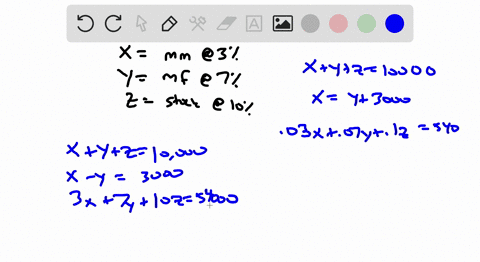 X = mm @ 3%
Y = mf @ 7%
Z = stock @ 10%
X+Y+Z=10000
X = Y+3000
.03x+.07y+.1z = 540
X+Y+Z=10,000
X-Y = 3000
3x+7y+10z=54000